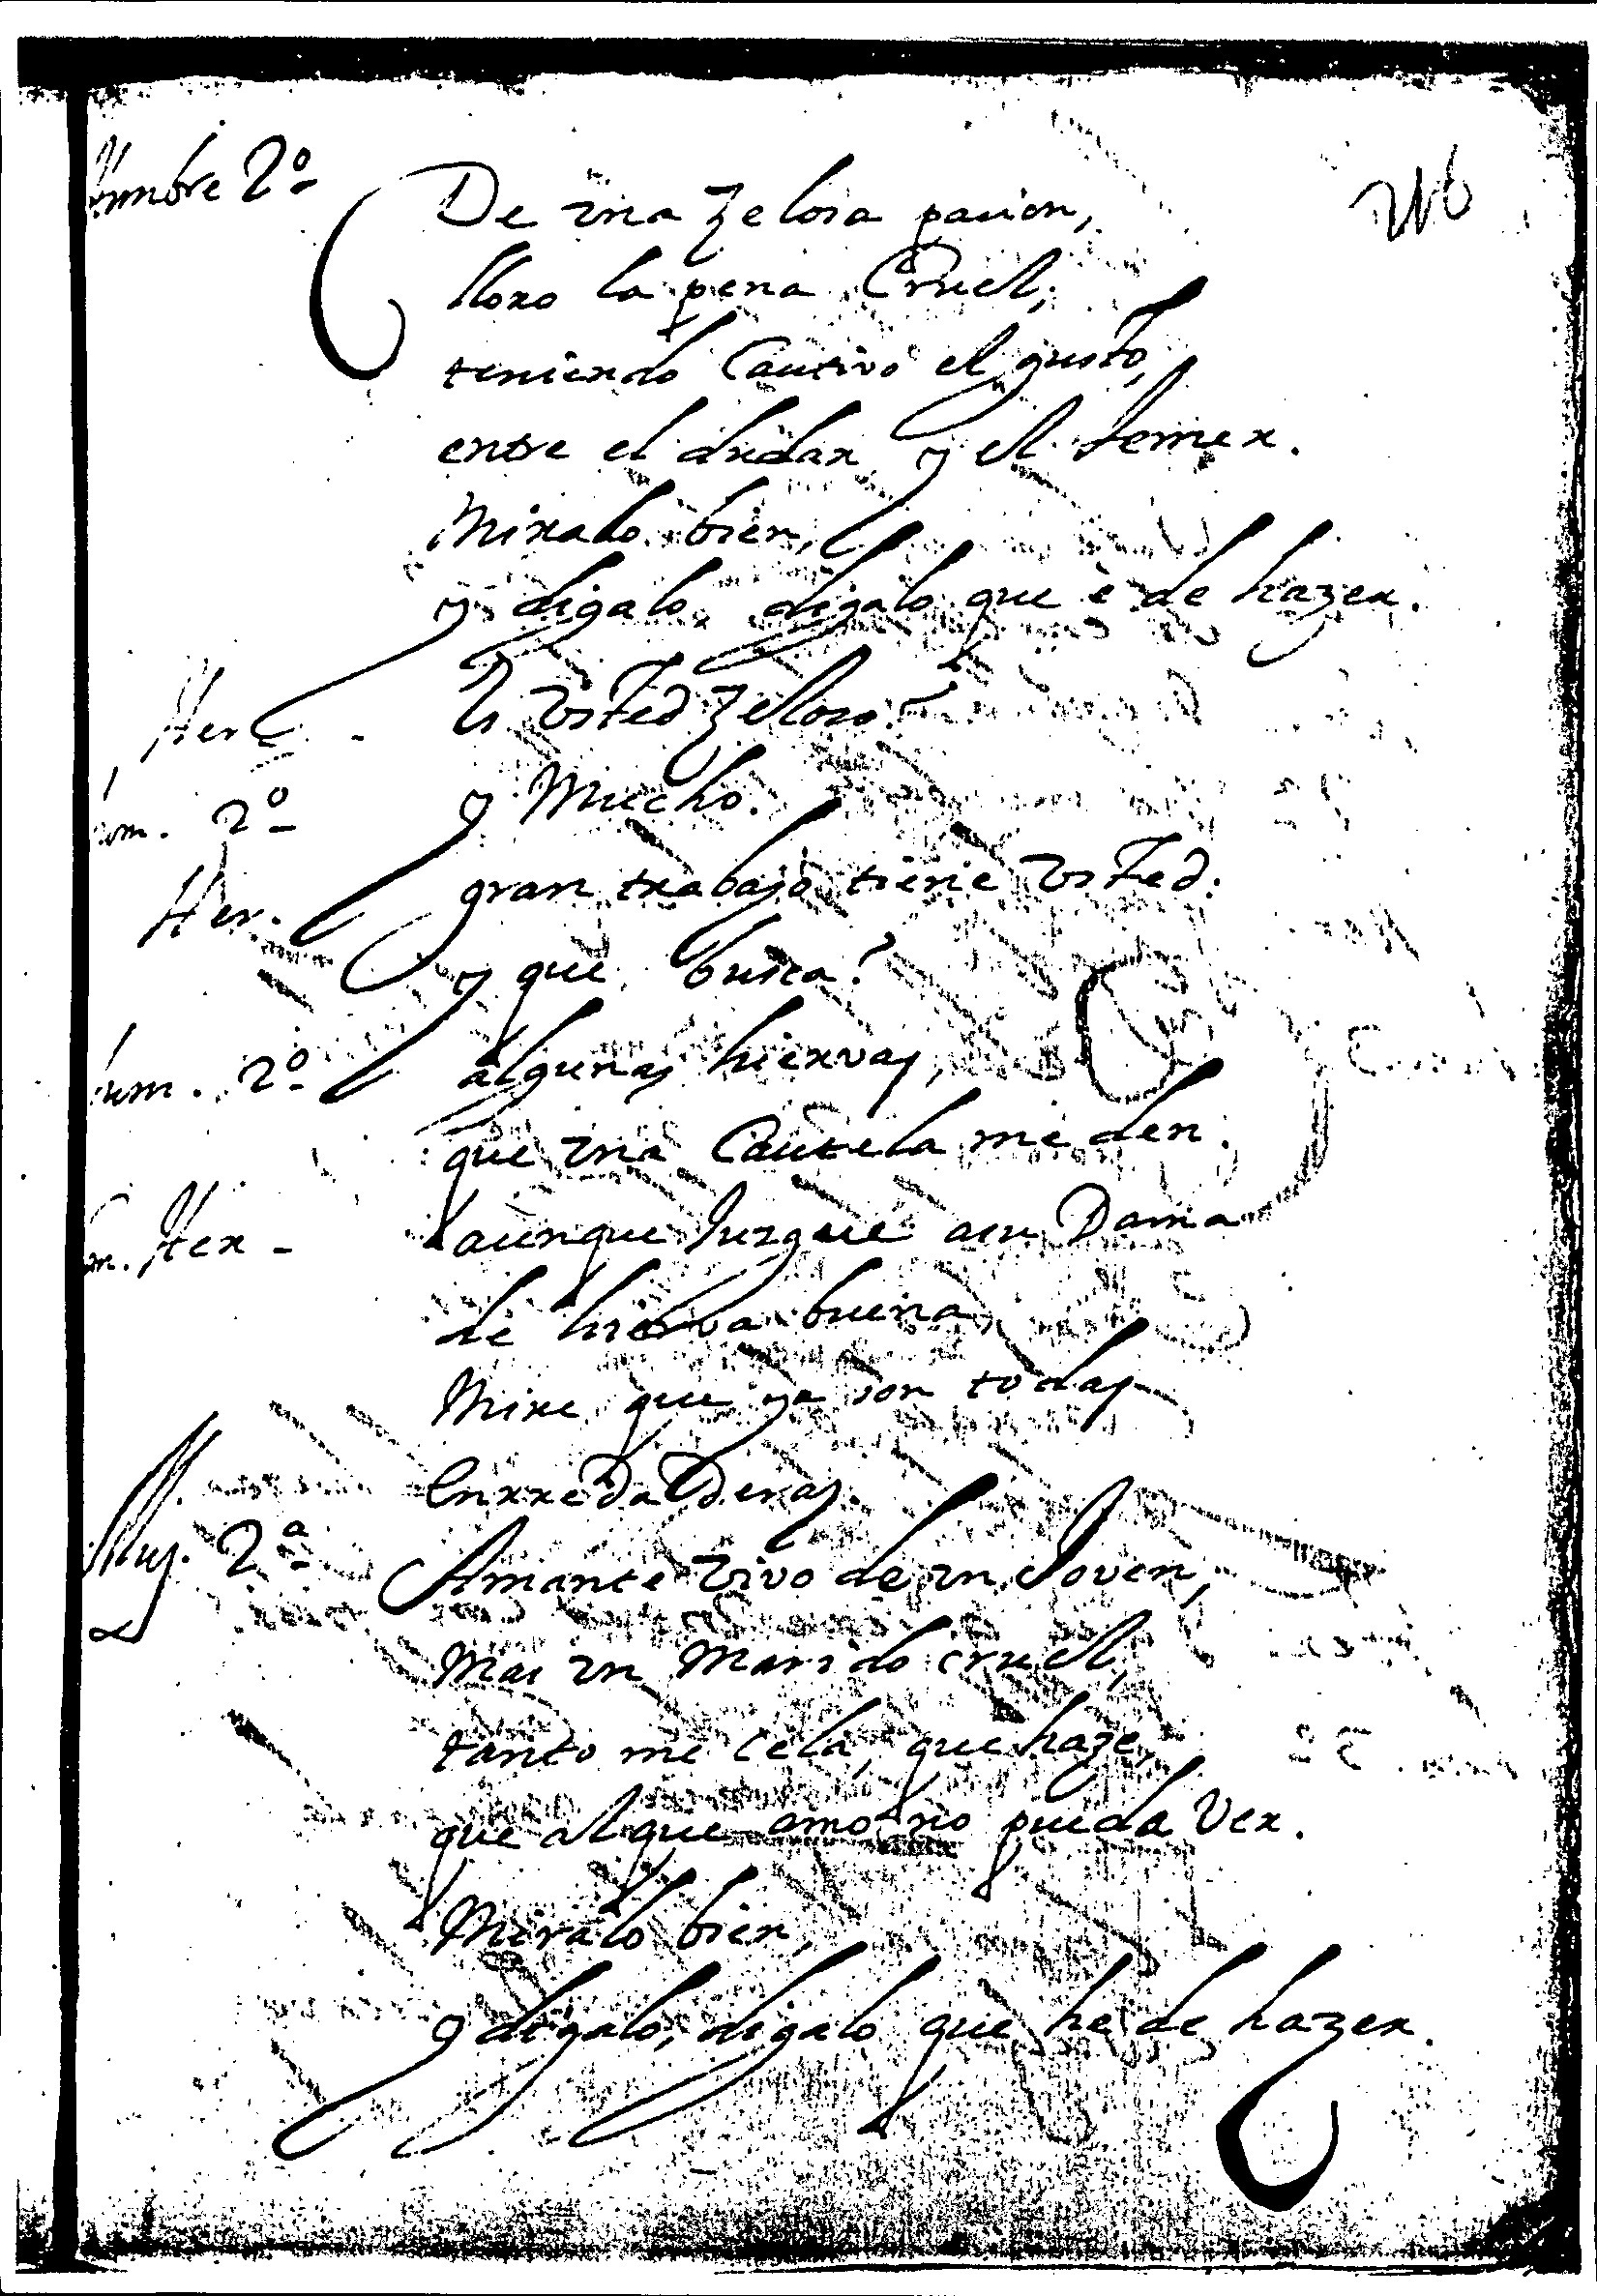 Hombre 2º
216
De vna zelosa pasion,
lloro la pena Cruel,
teniendo Cautivo el gusto,
entre el dudar y el temer.
Miralo bien,
y digalo, digalo que è de hazer.
Her. Es Vsted zeloso?
Hom. 2º y Mucho.
Her. gran trabajo tiene Vsted.
y que busca?
Hom. 2º algunas hiervas,
que vna Cautela me den.
Her. aunque Juzgue a su Dama
de hierva buena,
Mire que ya son todas
Enrredaderas.
Muj. 2ª Amante Vivo de vn Joven,
Mas vn Marido cruel,
tanto me Cela, que haze,
que al que amo no pueda Ver.
Miralo bien,
y digalo, digalo que he de hazer.